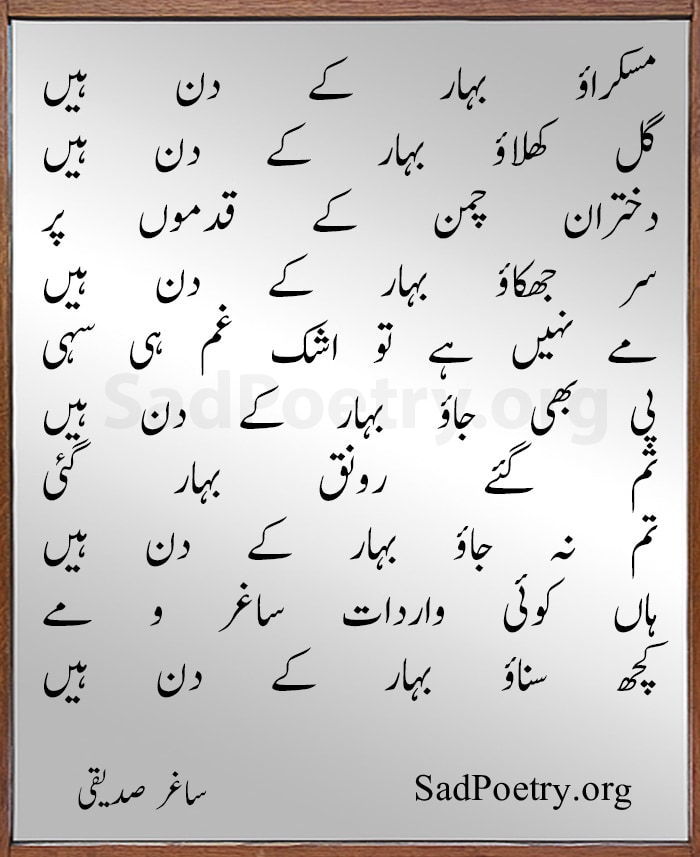 مسکراؤ بہار کے دن ہیں
گل کھلاؤ بہار کے دن ہیں
دختران چمن کے قدموں پر
سر جھکاؤ بہار کے دن ہیں
مے نہیں ہے تو اشک غم ہی سہی
SadPoetry.org
پی بھی جاؤ بہار کے دن ہیں
تم گئے رونق بہار گئی
تم نہ جاؤ بہار کے دن ہیں
ہاں کوئی واردات ساغر و مے
کچھ سناؤ بہار کے دن ہیں
ساغر صدیقی
SadPoetry.org